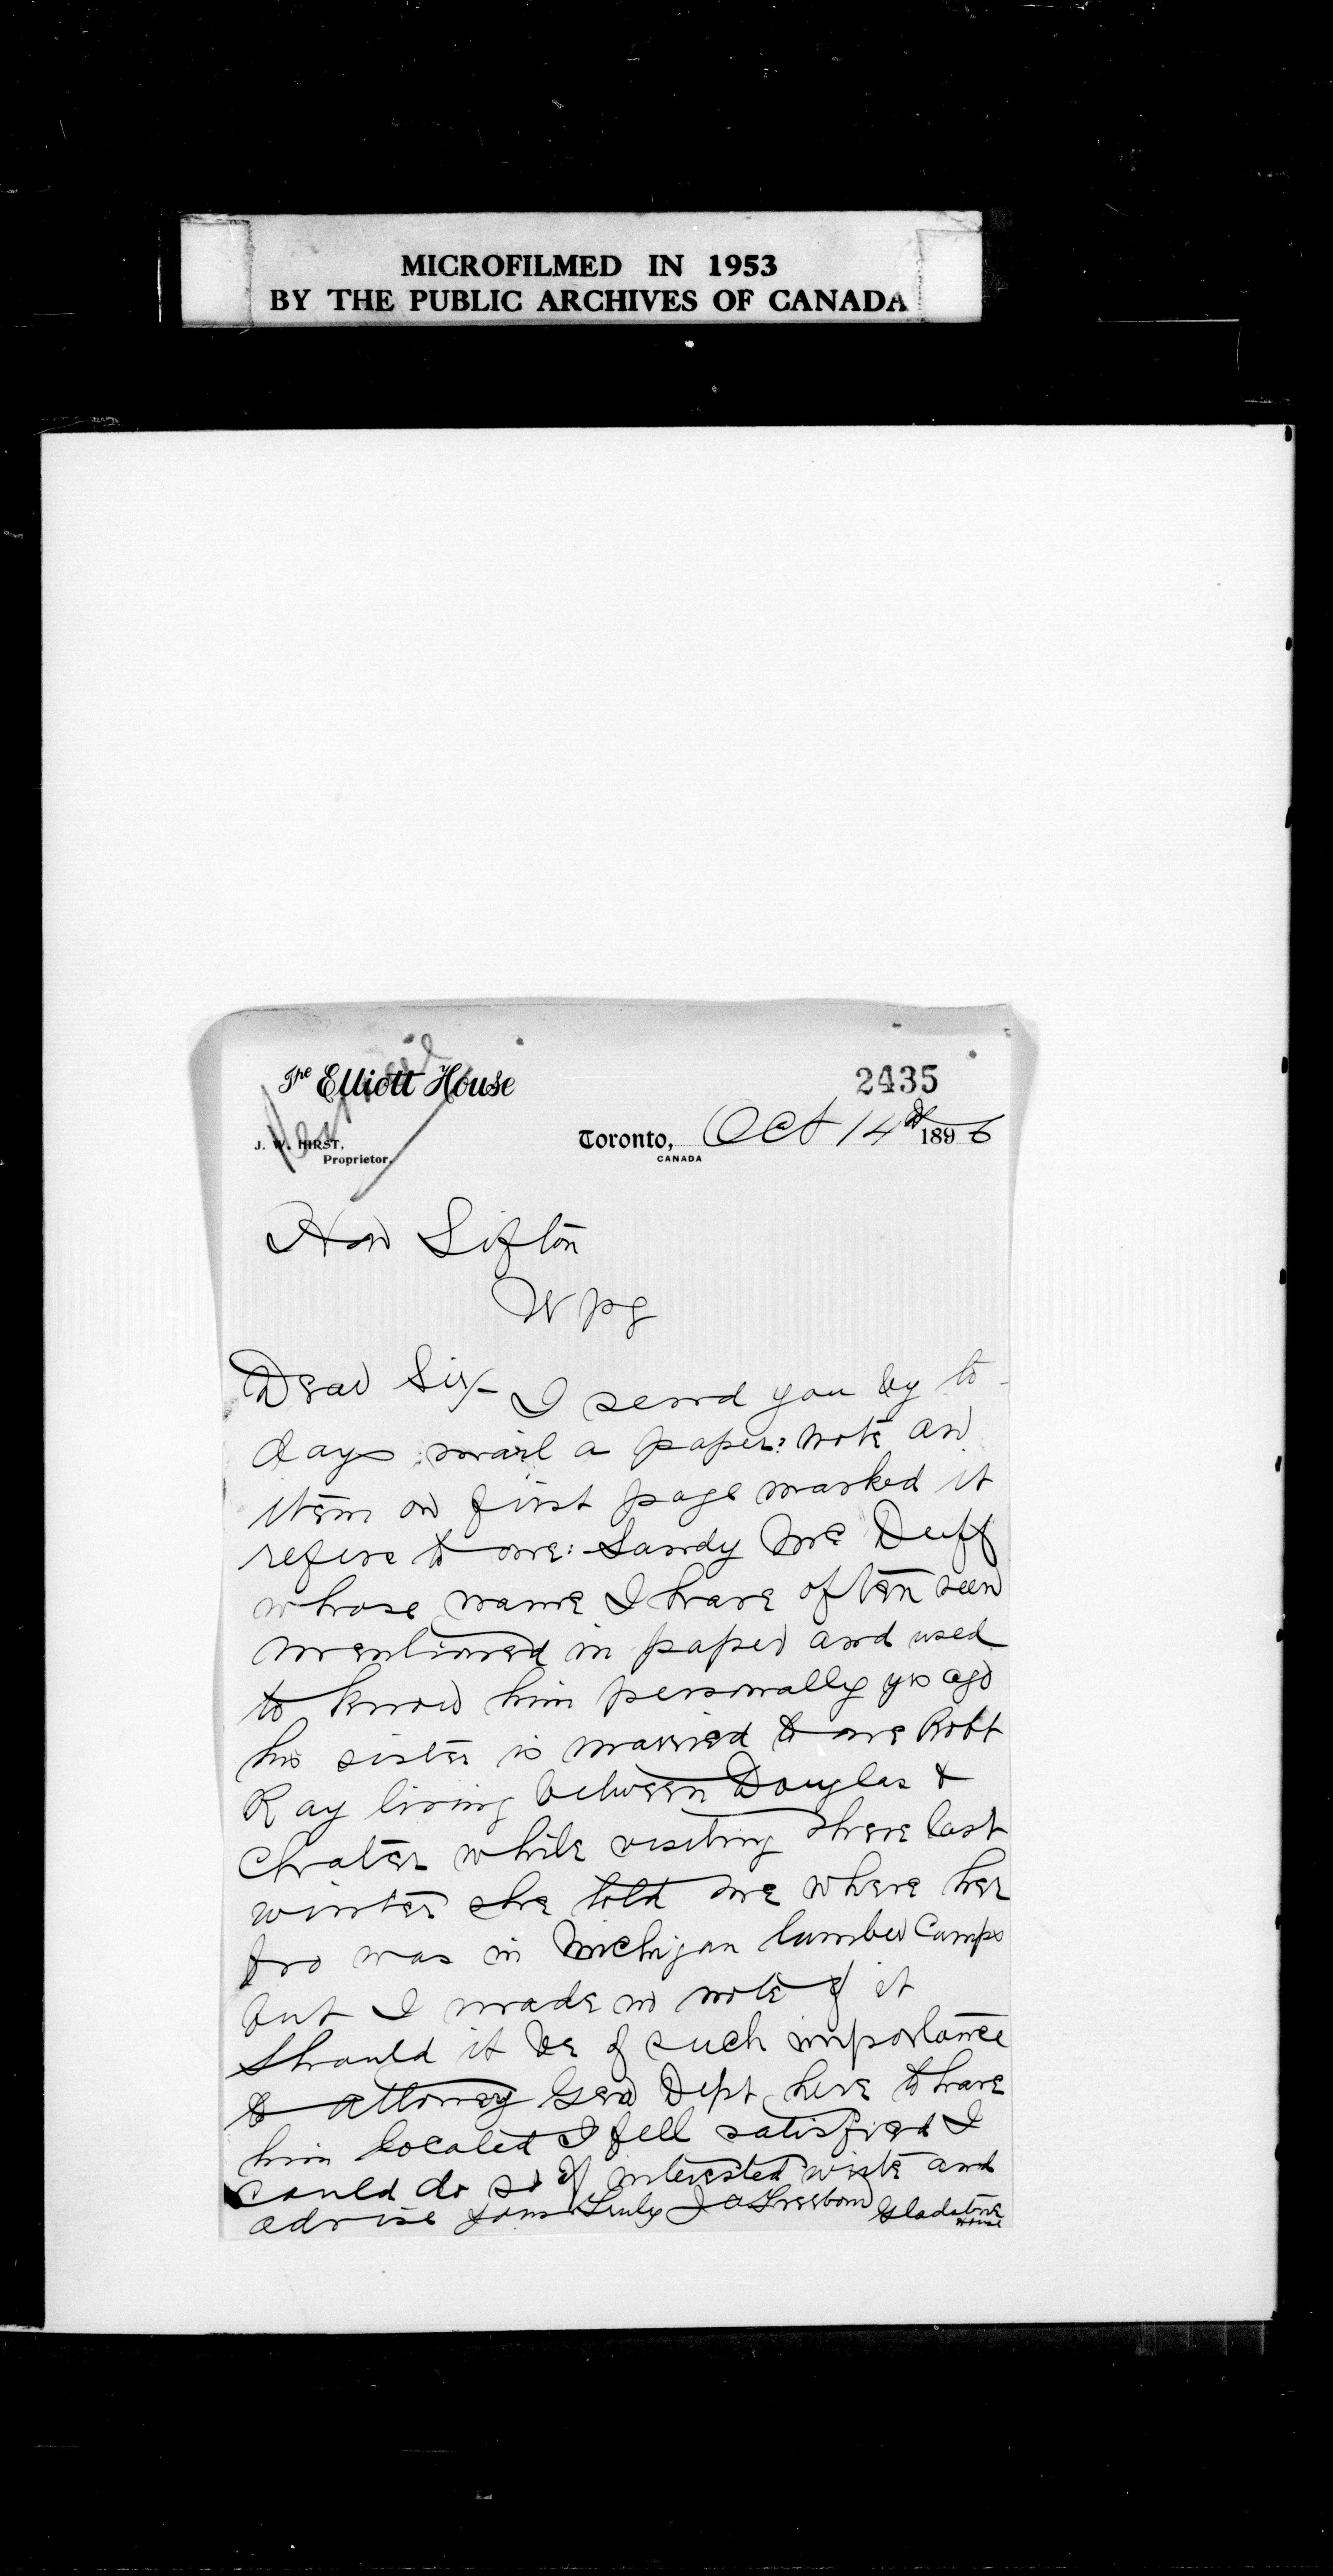 MICROFILMED IN 1953
BY THE PUBLIC ARCHIVES OF CANADA
The Elliott House
2435
J. W. HIRST,
Proprietor.
Toronto, Oct 14th 1896
CANADA
Hon Sifton
Wpg
Dear Sir/- I send you by to-
days mail a paper: note an
item on first page marked it
refers to one: Sandy McDuff
whose name I have often seen
mentioned in paper and used
to know him personally yrs ago
his sister is married to one Robt
Ray living between Douglas &
Chater while visiting there last
winter she told me where her
bro was in Michigan lumber Camps
but I made no note of it
Should it be of such importance
to Attorney Gen Dept here to have
him located I fell satisfied I
could do so if interested write and
advise Yours Truly J A Gladstone
House